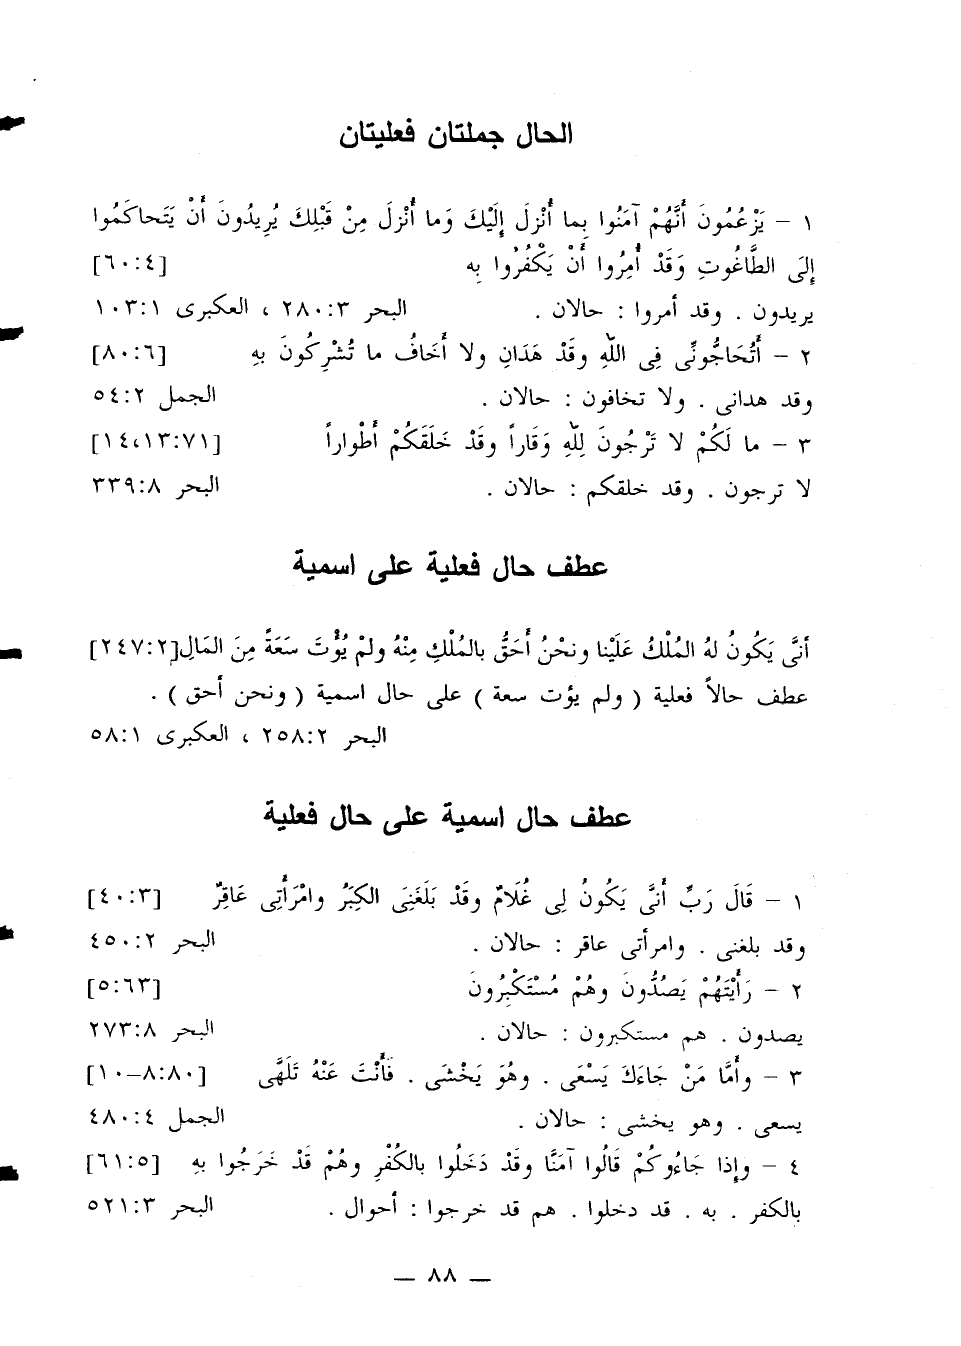 الحال جملتان فعليتان
١ – يَزْعُمُونَ أَنَّهُمْ آمَنُوا بِما أُنْزِلَ إِلَيْكَ وَما أُنْزِلَ مِنْ قَبْلِكَ يُرِيدُونَ أَنْ يَتَحاكَمُوا
إِلَى الطَّاغُوتِ وَقَدْ أُمِرُوا أَنْ يَكْفُرُوا بِه [٦٠:٤]
يريدون . وقد أمروا : حالان . البحر ٢٨٠:٣ ، العكبرى ١٠٣:١
٢ – أَتُحَاجُّونِّى فِى اللّهِ وَقَدْ هَدَانِ ولا أَخَافُ ما تُشْرِكُونَ بهِ [٨٠:٦]
وقد هدانى . ولا تخافون : حالان . الجمل ٥٤:٢
٣ – ما لَكُمْ لا تَرْجُونَ لِلّهِ وَقَاراً وقَدْ خَلَقَكُمْ أَطْواراً [١٤،١٣:٧١]
لا ترجون . وقد خلقكم : حالان . البحر ٣٣٩:٨
عطف حال فعلية على اسمية
أنَّى يَكُونُ لهُ المُلْكُ عَلَيْنا ونَحْنُ أَحَقُّ بالمُلْكِ مِنْهُ ولمْ يُؤْتَ سَعَةً مِنَ المَالِ[٢٤٧:٢]
عطف حالاً فعلية ( ولم يؤت سعة ) على حال اسمية ( ونحن أحق ) .
البحر ٢٥٨:٢ ، العكبرى ٥٨:١
عطف حال اسمية على حال فعلية
١ – قَالَ رَبِّ أَنَّى يَكُونُ لِى غُلَامٌ وقَدْ بَلَغَنِىَ الكِبَرُ وامْرَأَتِى عَاقِرٌ [٤٠:٣]
وقد بلغنى . وامرأتى عاقر : حالان . البحر ٤٥٠:٢
٢ – رَأَيْتَهُمْ يَصُدُّونَ وهُمْ مُسْتَكْبِرُونَ [٥:٦٣]
يصدون . هم مستكبرون : حالان . البحر ٢٧٣:٨
٣ – وأَمَّا مَنْ جَاءَكَ يَسْعَى . وهُوَ يَخْشَى . فَأَنْتَ عَنْهُ تَلَهَّى [٨:٨٠–١٠]
يسعى . وهو يخشى : حالان . الجمل ٤٨٠:٤
٤ – وإِذا جَاءُوكُمْ قَالُوا آمَنَّا وقَدْ دَخَلُوا بالكُفْرِ وهُمْ قَدْ خَرَجُوا بهِ [٦١:٥]
بالكفر . به . قد دخلوا . هم قد خرجوا : أحوال . البحر ٥٢١:٣
— ٨٨ —